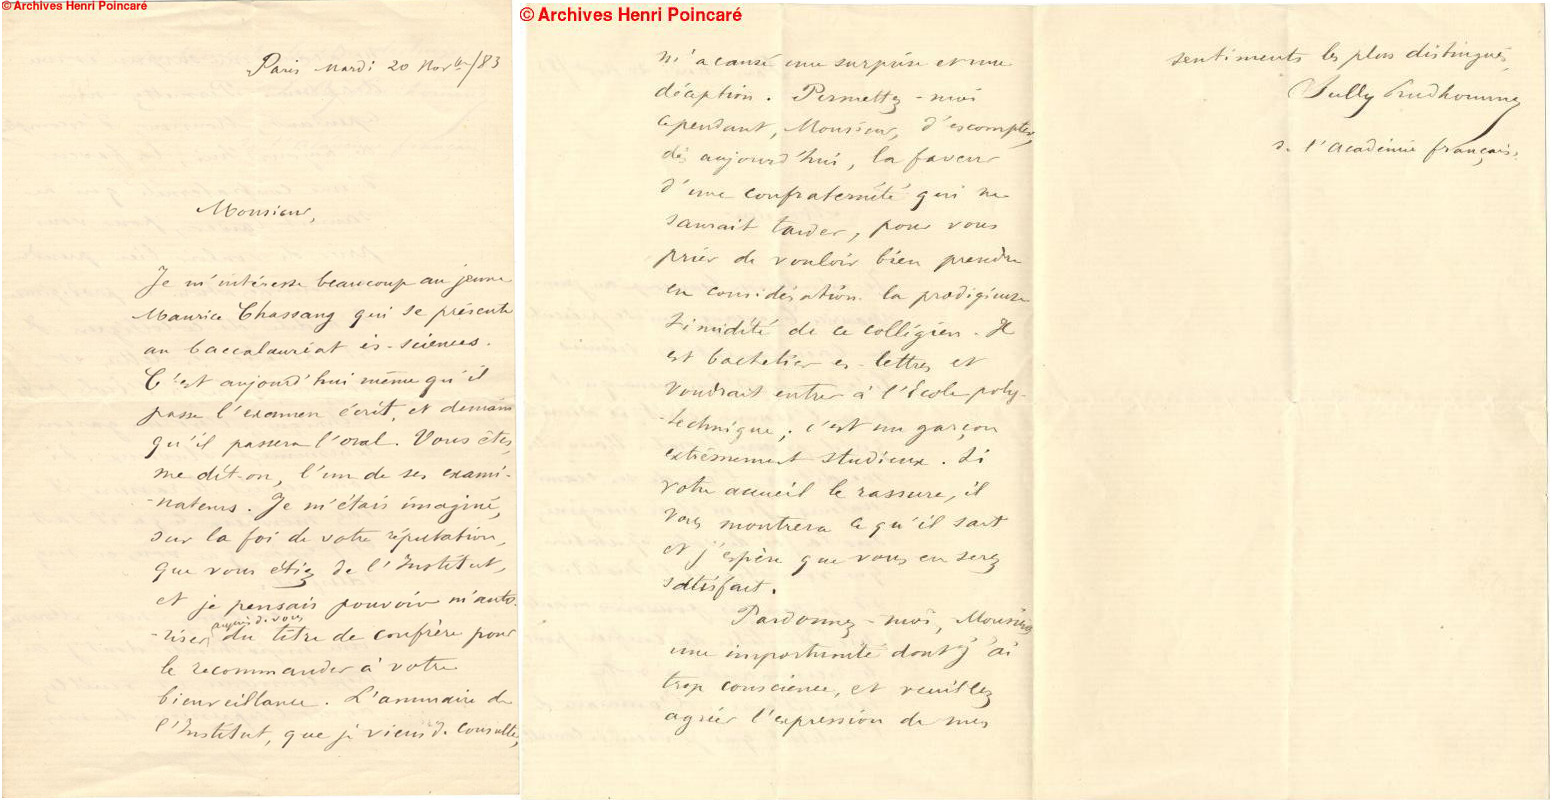 © Archives Henri Poincaré
Paris Mardi 20 Novbre/83
Monsieur,
Je m'intéresse beaucoup au jeune
Maurice Chassang qui se présente
au baccalauréat ès-sciences.
C'est aujourd'hui même qu'il
passe l'examen écrit, et demain
qu'il passera l'oral. Vous êtes,
me dit-on, l'un de ses exami-
-nateurs. Je m'étais imaginé,
sur la foi de votre réputation,
que vous étiez de l'Institut,
et je pensais pouvoir m'auto-
auprès de vous
-riser du titre de confrère pour
le recommander à votre
bienveillance. L'annuaire de
l'Institut, que je viens de consulter,
© Archives Henri Poincaré
m'a causé une surprise et une
déception. Permettez-moi
cependant, Monsieur, d'escompter,
dès aujourd'hui, la faveur
d'une confraternité qui ne
saurait tarder, pour vous
prier de vouloir bien prendre
en considération la prodigieuse
timidité de ce collégien. Il
est bachelier ès-lettres et
voudrait entrer à l'École poly-
-technique ; c'est un garçon
extrêmement studieux. Si
votre accueil le rassure, il
vous montrera ce qu'il sait
et j'espère que vous en serez
satisfait.
Pardonnez-moi, Monsieur,
une importunité dont j'ai
trop conscience, et veuillez
agréer l'expression de mes
sentiments les plus distingués,
Sully Prudhomme
de l'Académie française.